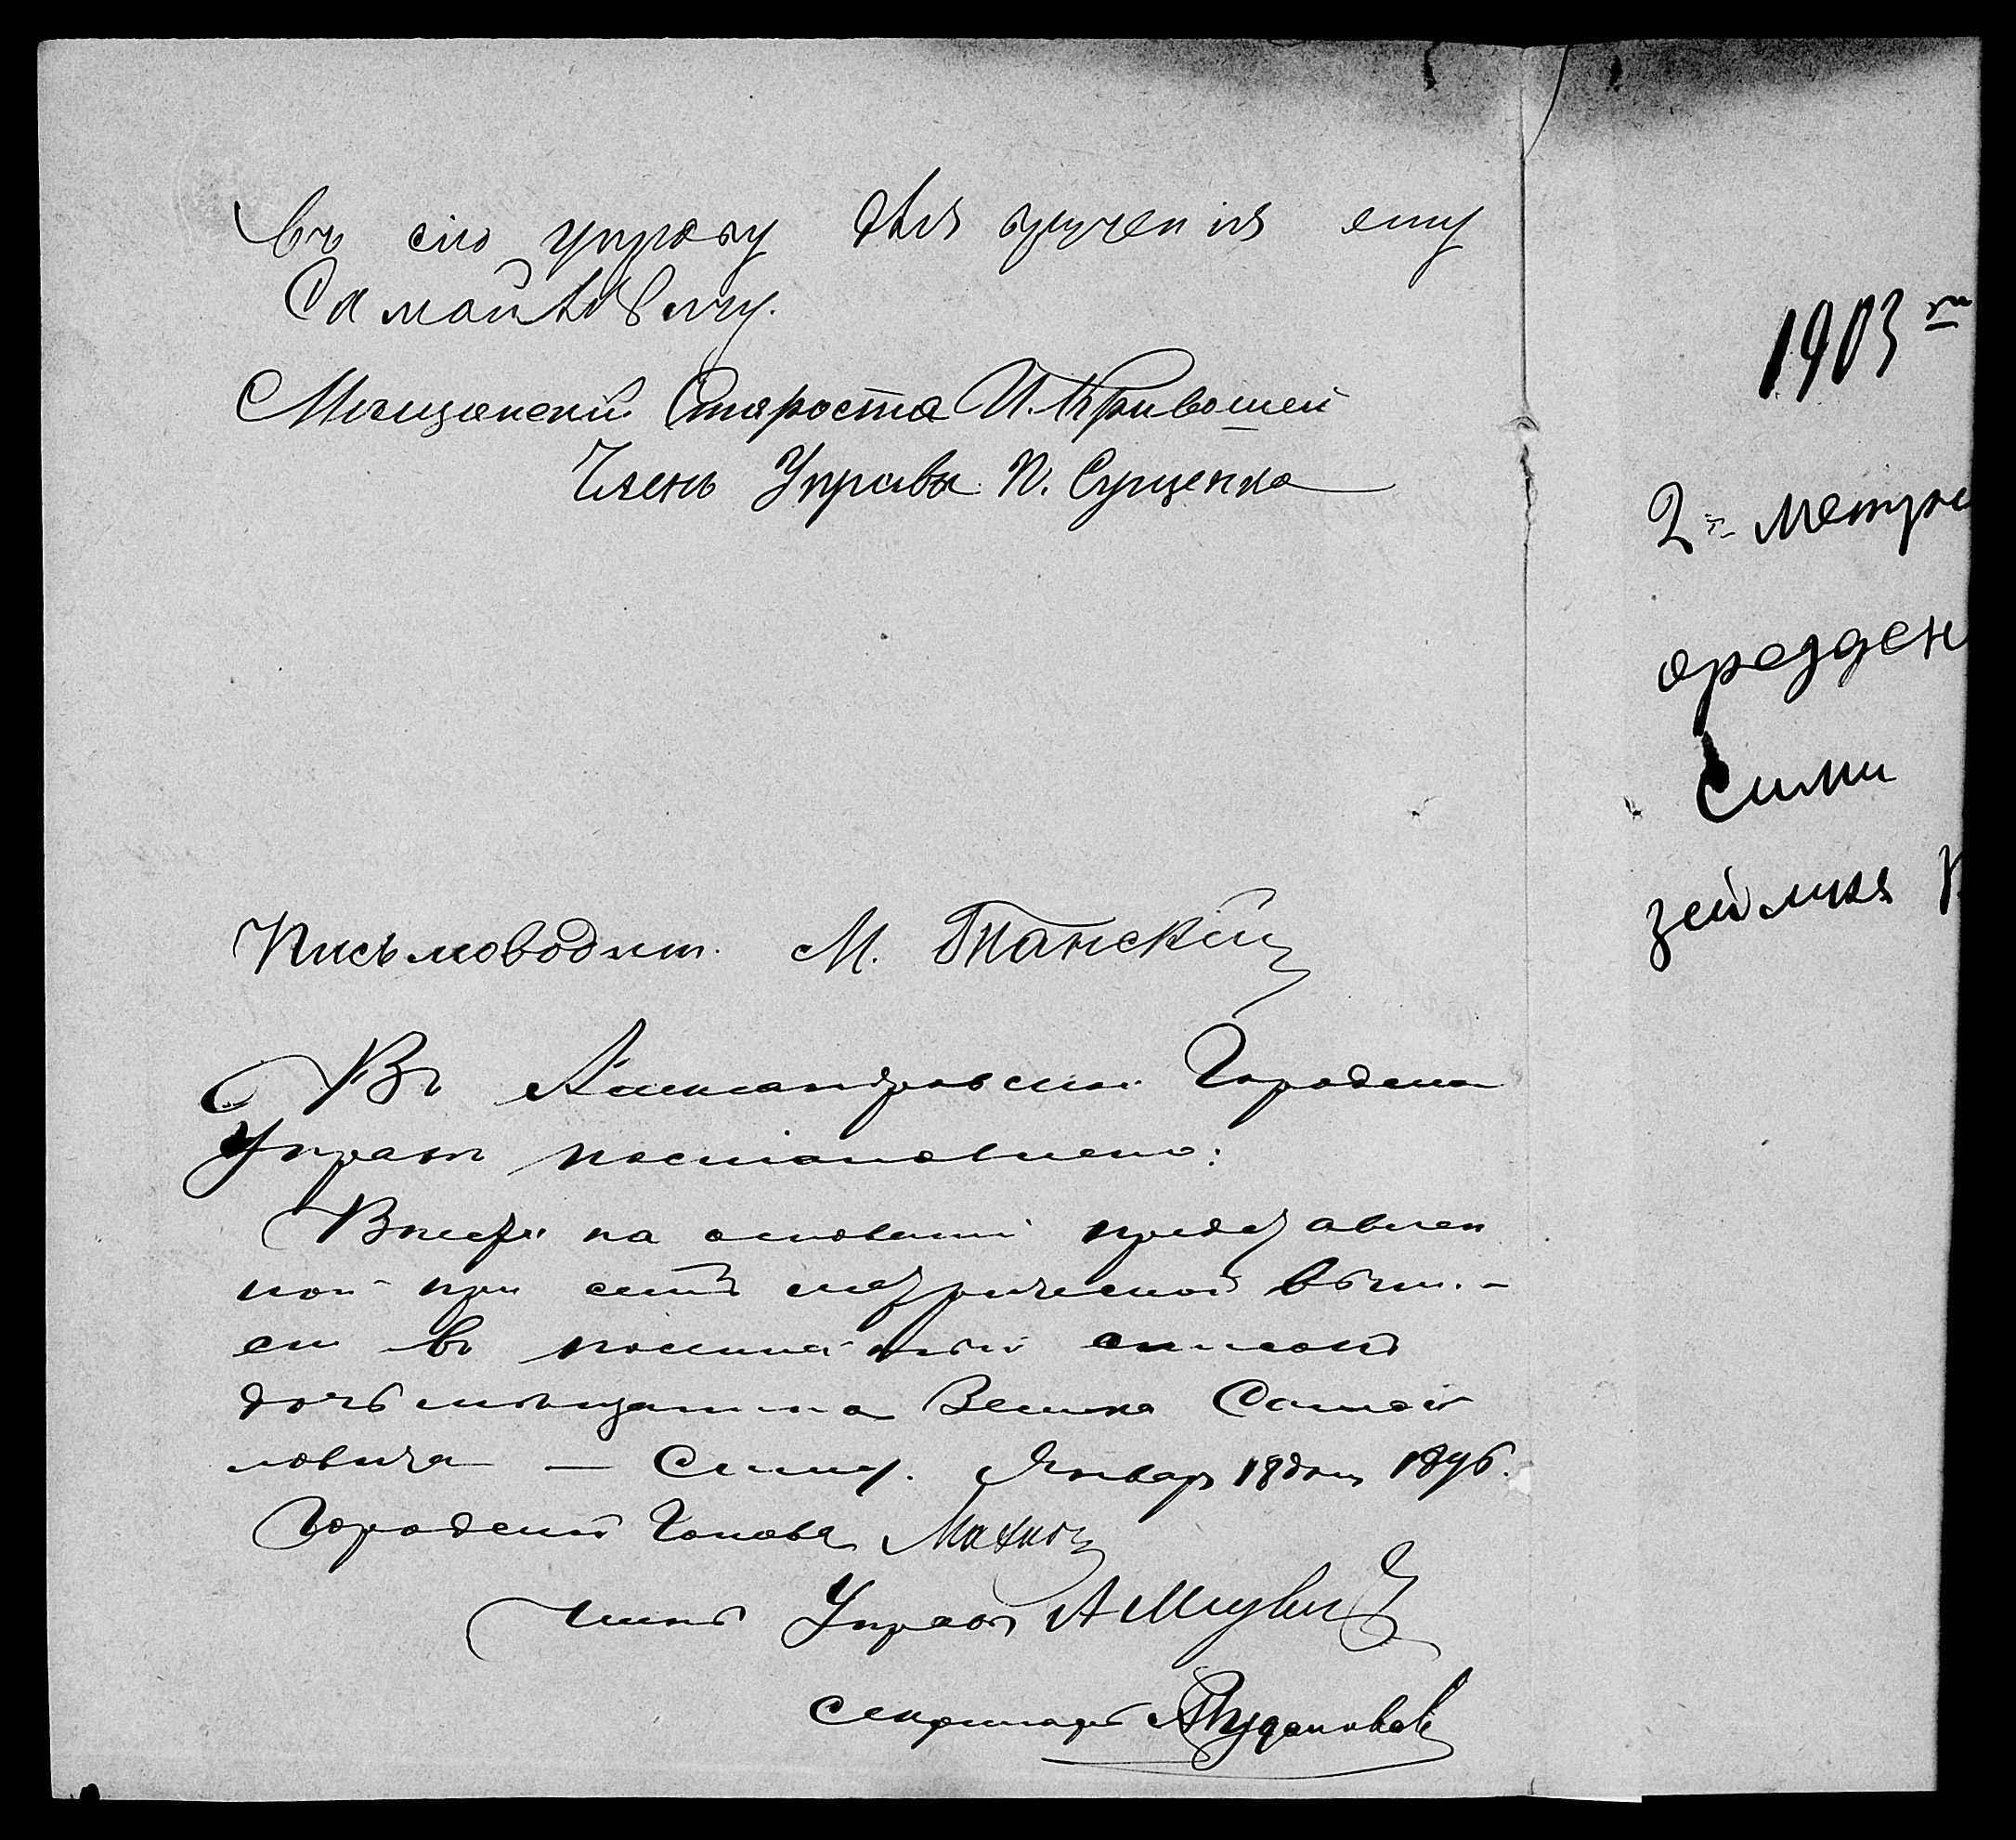 въ сію управу для врученія ему
Самайловичу.
Мещанскій Староста И. Кривошей
Членъ Управы П. Сущенко
Письмоводит. М. Тканскій
Въ Александровской Городской
Управѣ постановлено:
на основаніи представлен
ной при семъ метрической выпи-
си въ посемейный списокъ
дочь мѣщанина Велика Самай
ловича — Симу. Январь 18 дня 1896.
Городской Голова Махно
Членъ Управы
Секретарь
1903 го
2го метри
о рожден
Симы